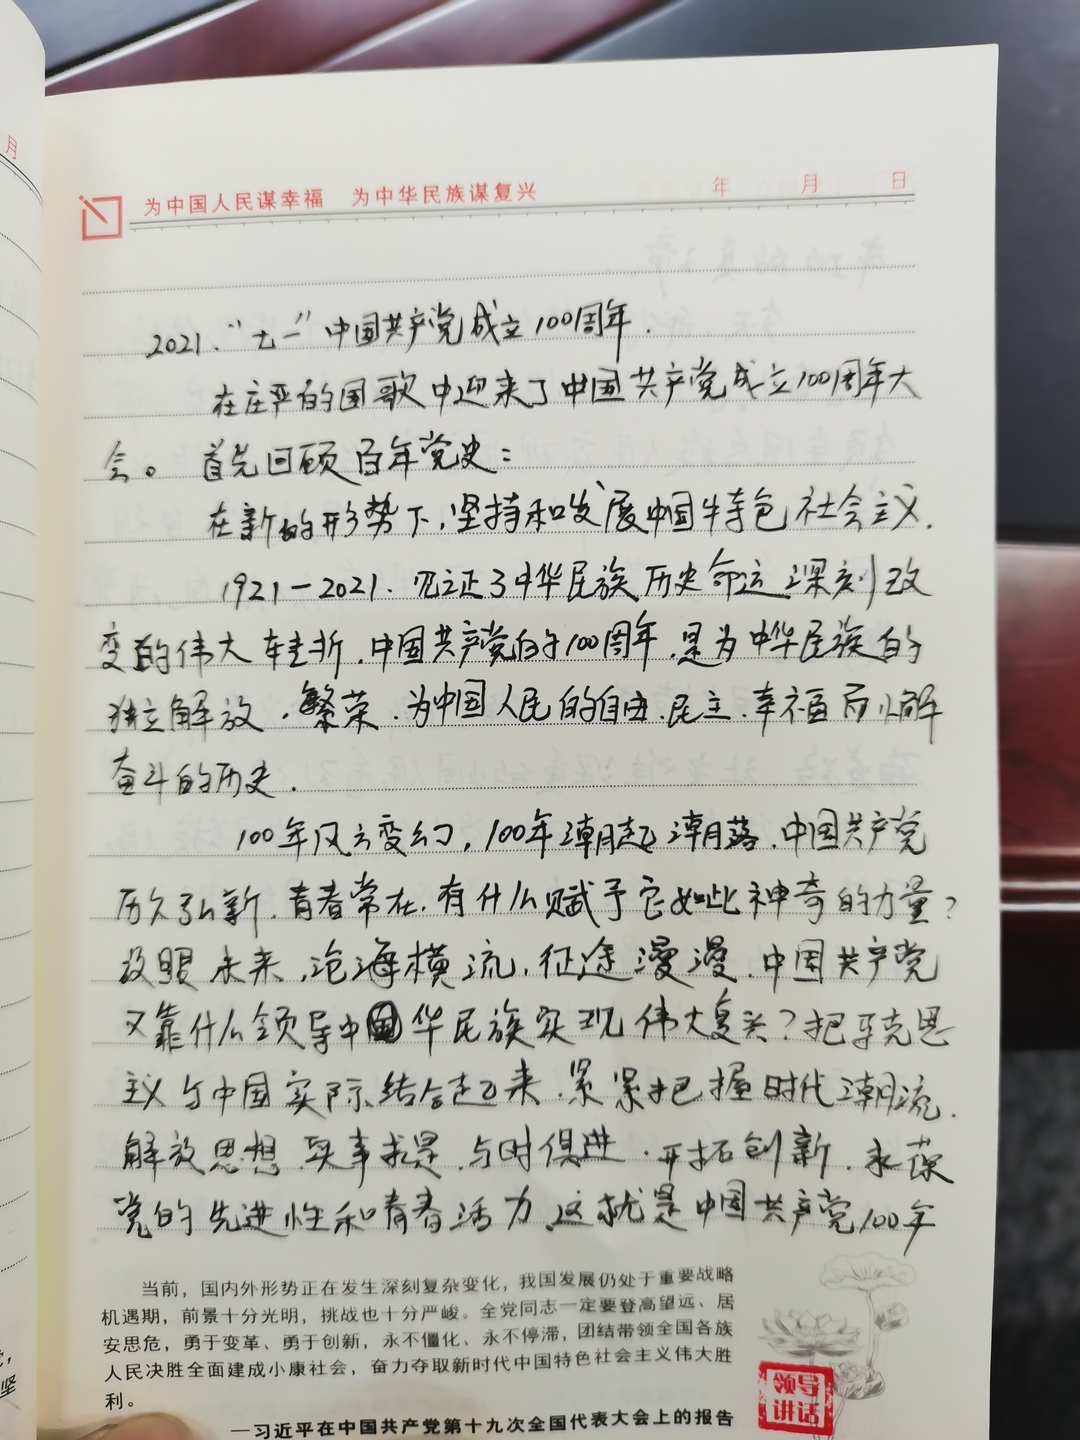 月
为中国人民谋幸福 为中华民族谋复兴
年 月 日
2021.“七一”中国共产党成立100周年.
在庄严的国歌中迎来了中国共产党成立100周年大
会。首先回顾百年党史:
在新的形势下,坚持和发展中国特色社会主义.
1921—2021.见证了中华民族历史命运深刻改
变的伟大转折.中国共产党的100周年.是为中华民族的
独立解放,繁荣.为中国人民的自由.民主.幸福而不懈
奋斗的历史.
100年风云变幻,100年潮起潮落.中国共产党
历久弘新.青春常在.有什么赋予它如此神奇的力量?
放眼未来,沧海横流,征途漫漫.中国共产党
又靠什么领导中国华民族实现伟大复兴?把马克思
主义与中国实际结合起来.紧紧把握时代潮流.
解放思想.实事求是.与时俱进.开拓创新.永葆
党的先进性和青春活力.这就是中国共产党100年
当前,国内外形势正在发生深刻复杂变化,我国发展仍处于重要战略
机遇期,前景十分光明,挑战也十分严峻。全党同志一定要登高望远、居
安思危,勇于变革、勇于创新,永不僵化、永不停滞,团结带领全国各族
人民决胜全面建成小康社会,奋力夺取新时代中国特色社会主义伟大胜
利。
—习近平在中国共产党第十九次全国代表大会上的报告
领导
讲话
坚